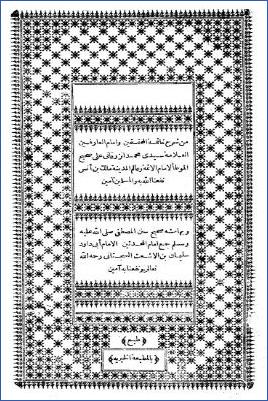 من شرح خاتمة المحققين وامام العارفين
العلامة سيدى محمد الزرقانى على صحيح
الموطأ لامام الائمة وعالم المدينة مالك بن أنس
نفعنا الله به والمسلمين آمين
وبهامشه صحيح سنن المصطفى صلى الله عليه
وسلم جمع امام المحدثين الامام أبى داود
سليمان بن الاشعث السجستانى رحمه الله
تعالى ونفعنا به آمين
طبع
بالمطبعة الخيرية